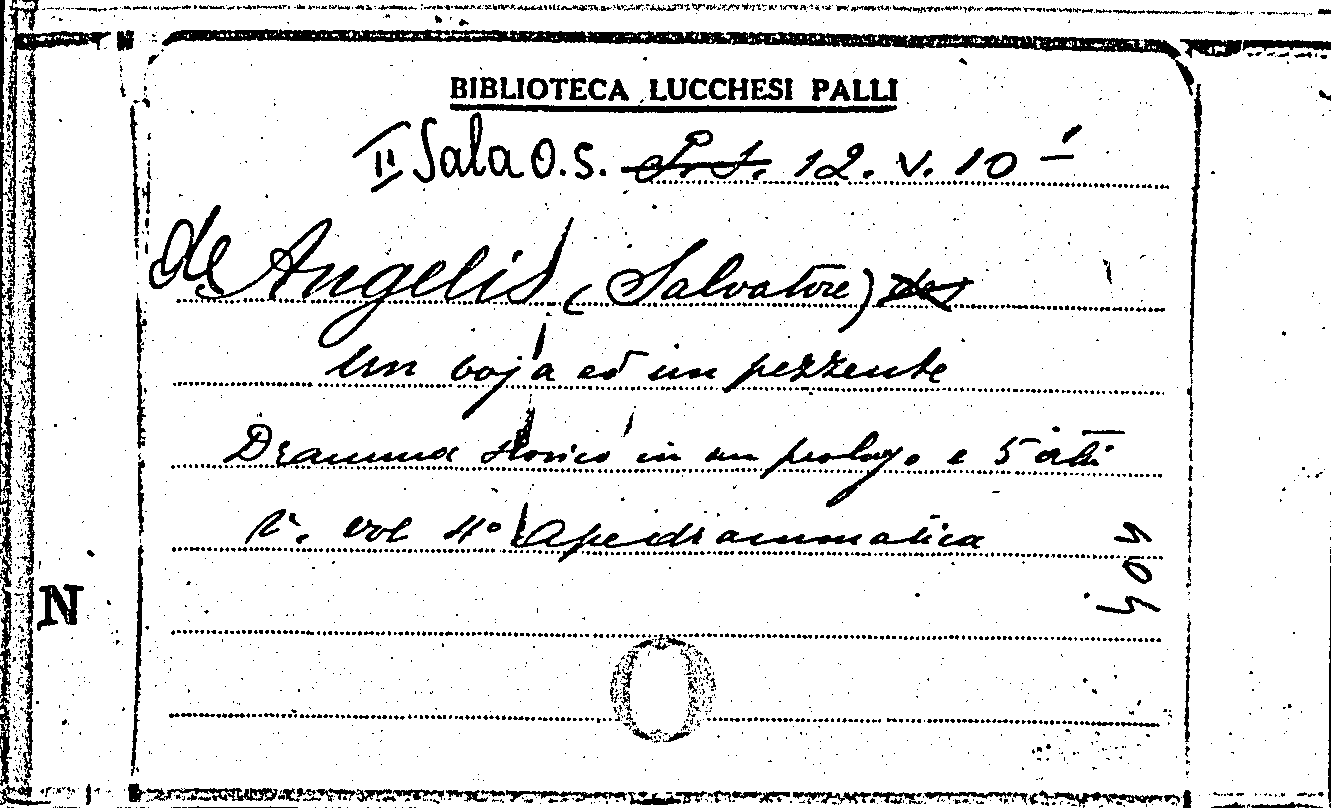 BIBLIOTECA LUCCHESI PALLI
II Sala O.S. P.S. 12. V. 10
de Angelis (Salvatore)
Un boja ed un pezzente
Dramma storico in un prologo e 5 atti
V. vol 4° Ape drammatica
N